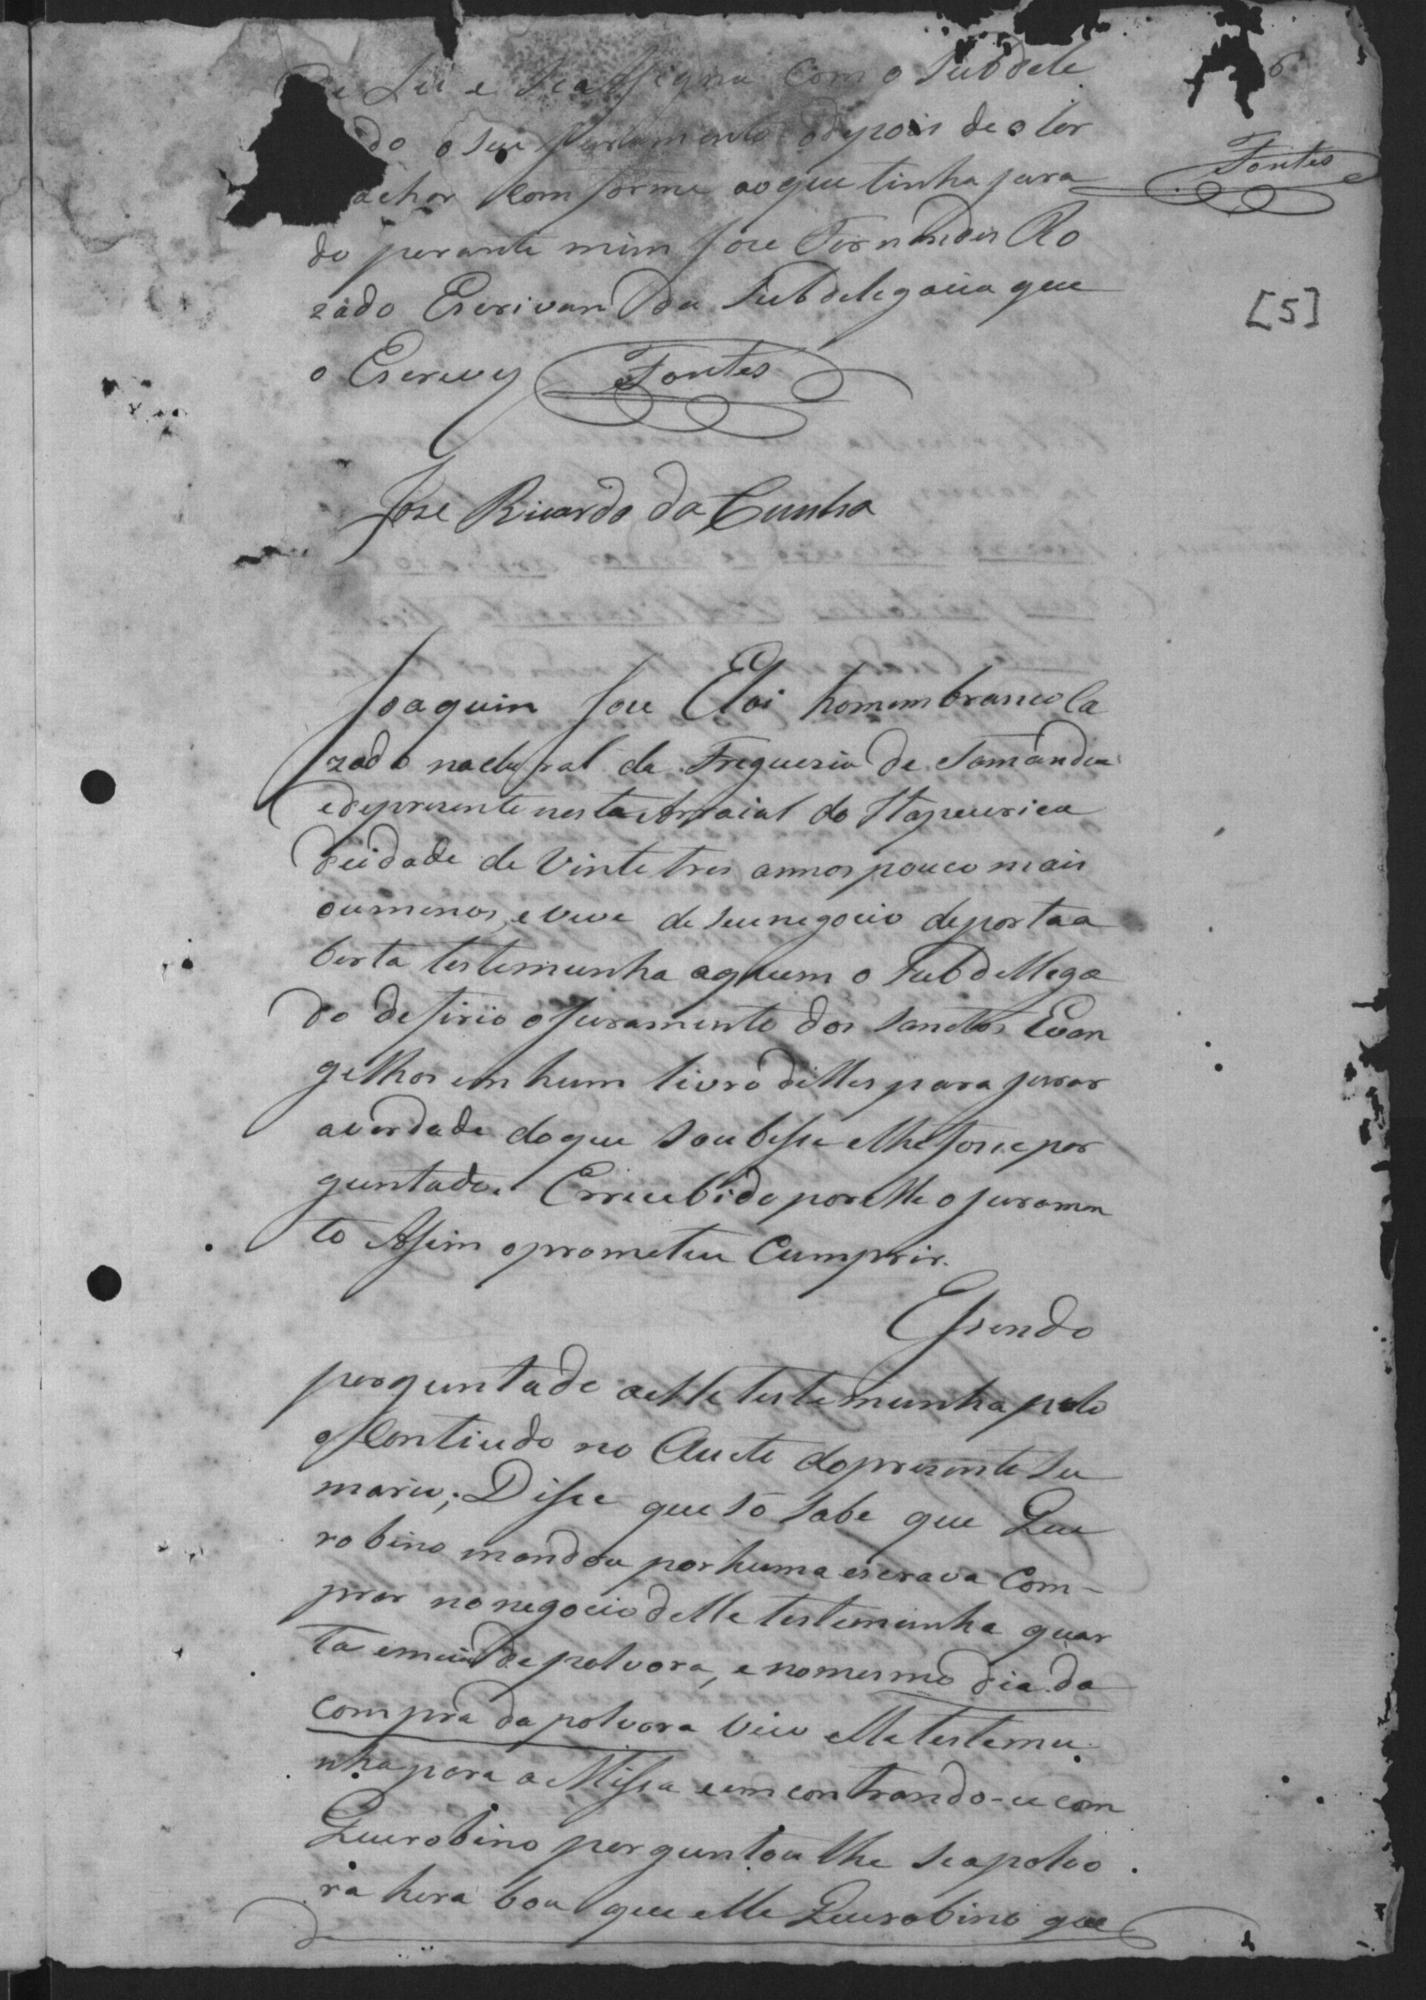 6
de Lei e se assigna Com o Subdele
do o seu juramento edepois de o ler
achar Comforme aoque tinha jura
Fontes
do perante mim Jose Fernandes Ro
zado Escrivam da Subdelegacia que
[5]
o Escrevy Fontes
Jose Ricardo da Cunha
Joaquim Jose Eloi homembranco Ca
zado nactural da Freguezia de Tamandua
edeprezente nesta Arraial do Itapecirica
deidade de Vinte tres annos pouco mais
oumenos, e vive de seu negocio deportaa
berta testemunha aquem o Subdellega
do defirio o juramento dos Sanctos Evan
gelhos em hum livro delles para jurar
averdade doque Soubesse elhe fosse per
guntado. Errecebido porelle o juramen
to Assim oprometeu Cumprir.
Essendo
perguntado aelle testemunha pelo
Contiudo no Aucto dopresente Su
mario; Disse que só Sabe que Que
robino mandou por huma escrava Com-
prar nonegocio delle testemunha quar
ta emeia de polvora, e nomesmo dia da
compra da polvora veio elle testemu
nha para a Missa eemcontrando-se com
Querobino perguntou lhe seapolvo
ra hera boa que elle Querobino que